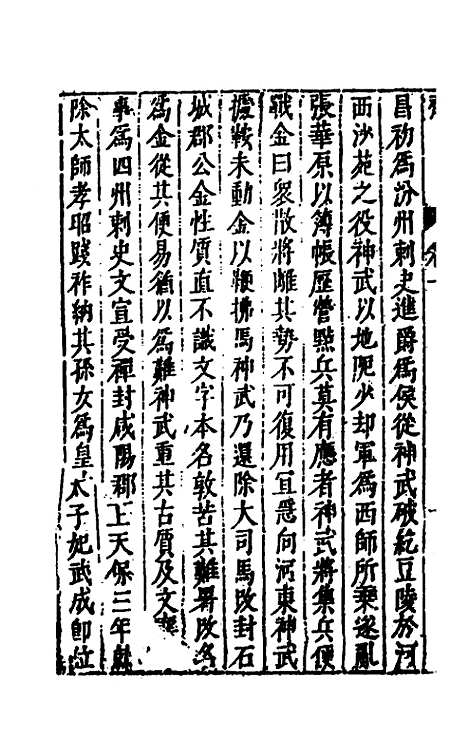 昌初為汾州刺史進爵為侯從神武破紇豆陵於河
西沙苑之役神武以地阨少却軍為西師所乘遂亂
張華原以簿帳歷營點兵莫有應者神武將集兵便
戰金曰衆散將離其勢不可復用宜急向河東神武
據鞍未動金以鞭拂馬神武乃還除大司馬改封石
城郡公金性質直不識文字本名敦苦其難署改名
為金從其便易猶以為難神武重其古質及文
為四州刺史文宣受禪封咸陽郡上天保三年
除太師孝昭踐祚納其孫女為皇太子妃武成即位